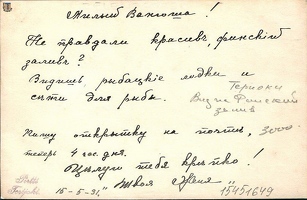 Милый Ванюша!
Не правдали красивъ финскій
заливъ?
Видишь рыбацкіе лодки и
сѣти для рыбы.
Териоки
Вид на Финский
залив
Пишу открытку на почтѣ, 3000
теперь 4 час. дня.
Цѣлую тебя крѣпко!
15-5-31. Твоя Женя
15451649